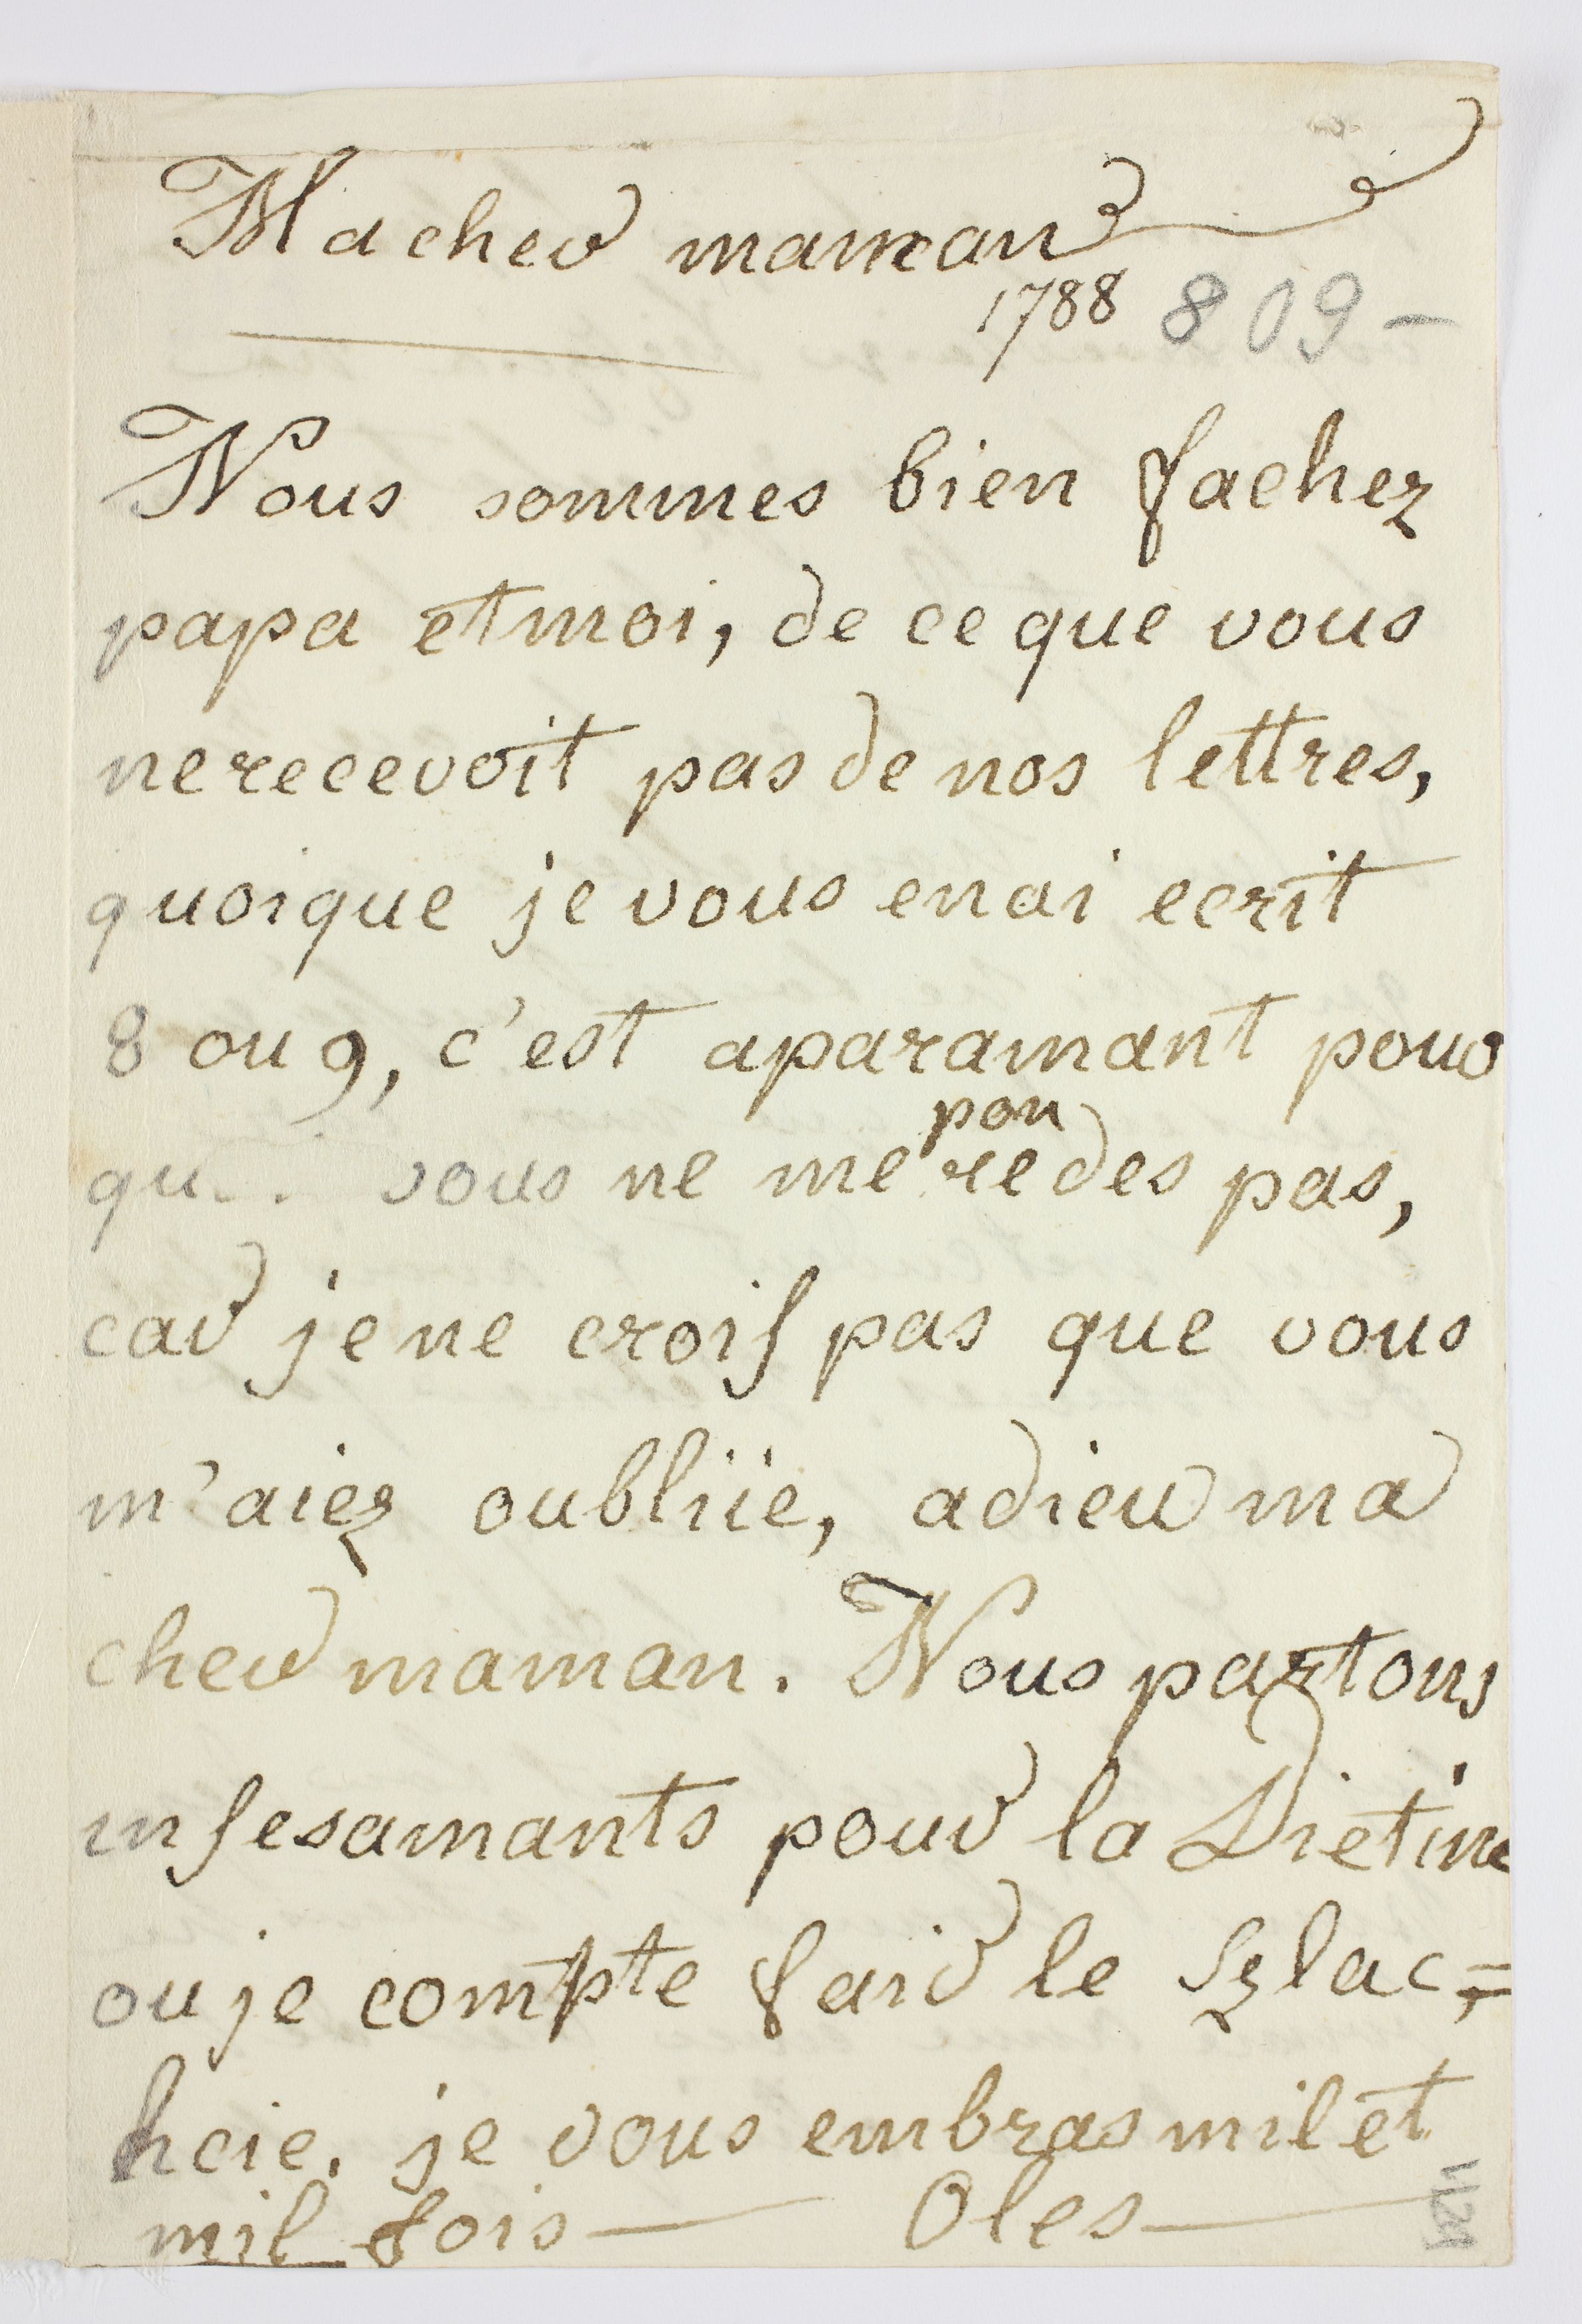 Ma cher maman
1788 809 -
Nous sommes bien fachez
papa et moi, de ce que vous
ne recevoit pas de nos lettres,
quoique je vous en ai ecrit
8 ou 9, c'est aparamant pour
pon
qu.. . vous ne me redes pas,
car je ne crois pas que vous
m'aiez oubliie, adieu ma
cher maman. Nous partons
insesamants pour la Dietine
ou je compte fair le Szlac,=
hcie. je vous embras mil et
mil fois — Oles —